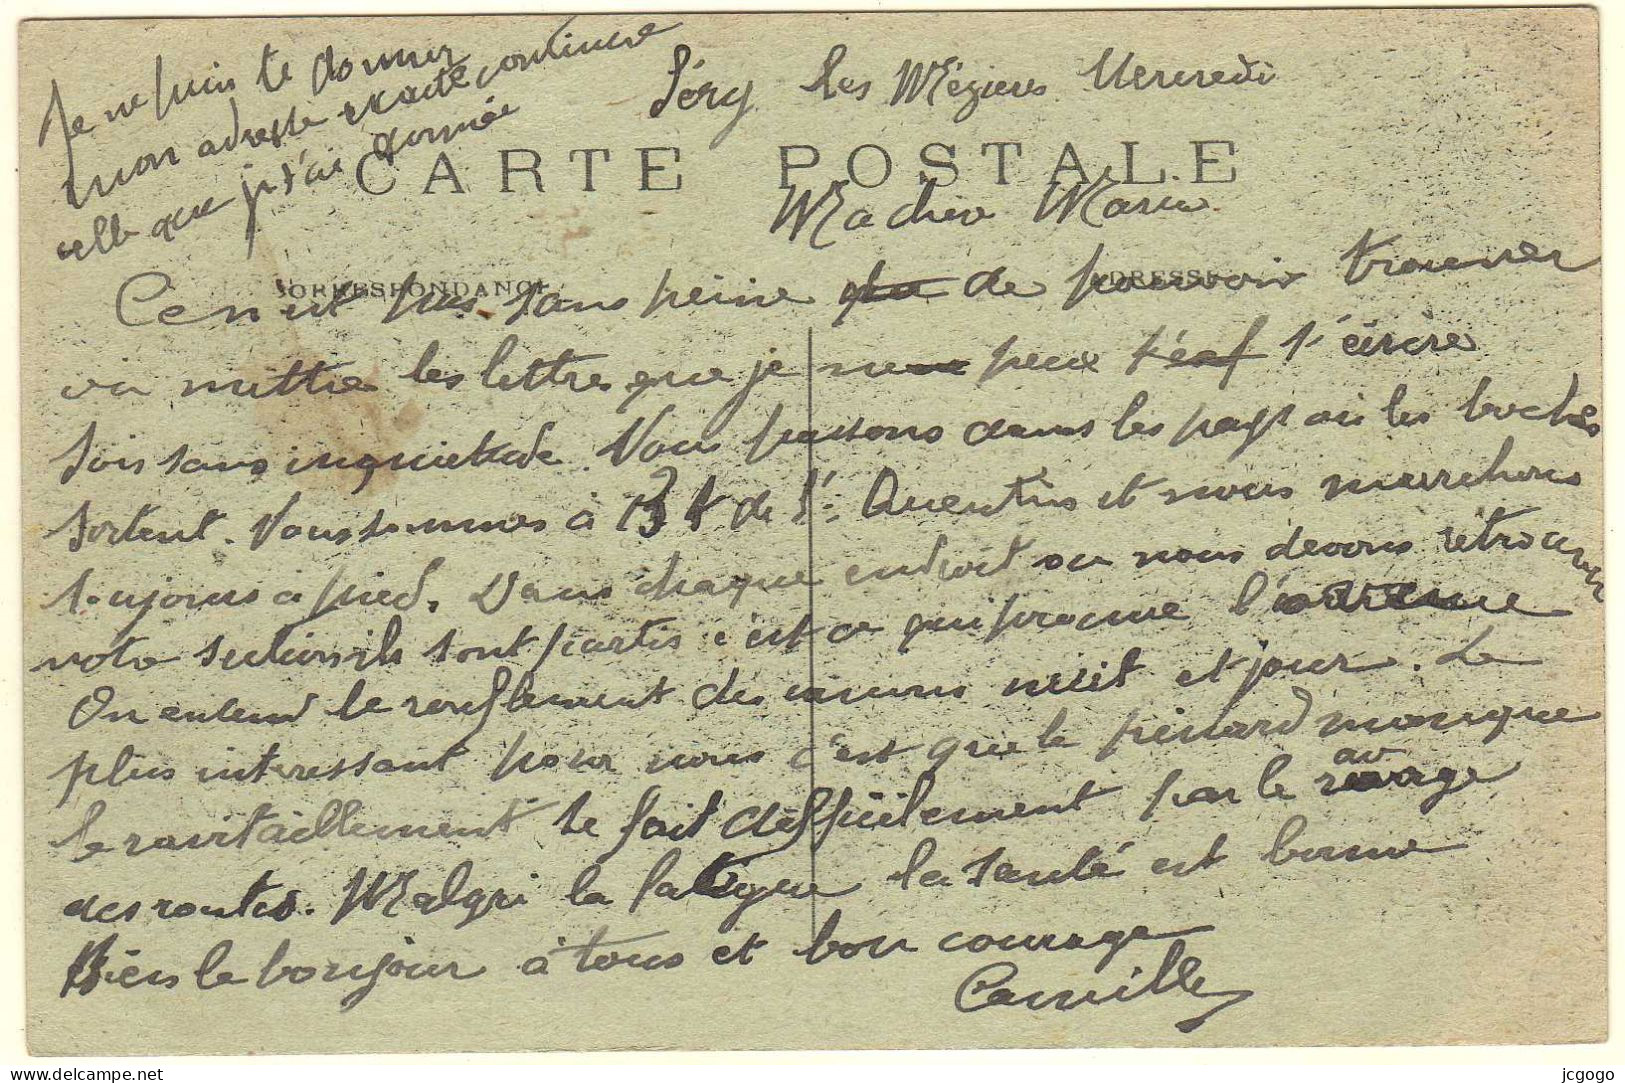 Je ne puis te donner
mon adresse exacte continue
celle que je t'ai donnée
Séry les Mézieres Mercredi
CARTE POSTALE
Ma chère Marie
CORRESPONDANCE
ADRESSE
Ce n'est pas sans peine de pouvoir trouver
où mettre les lettres que je peux t'écrire
Sois sans inquietude. Nous passons dans les pays où les boches
sortent. Nous sommes à 13 k de St Quentin et nous marchons
toujours à pied. Dans chaque endroit ou nous devons retrouver
notre section ils sont partis c'est ce qui procure
On entend le ronflement des nuit et jour. Le
plus interessant pour nous c'est que le pinard manque
le ravitaillement se fait difficilement par le ravage
des routes. Malgré la fatigue la santé est bonne
Bien le bonjour à tous et bon courage
Camille
www.delcampe.net
jcgogo